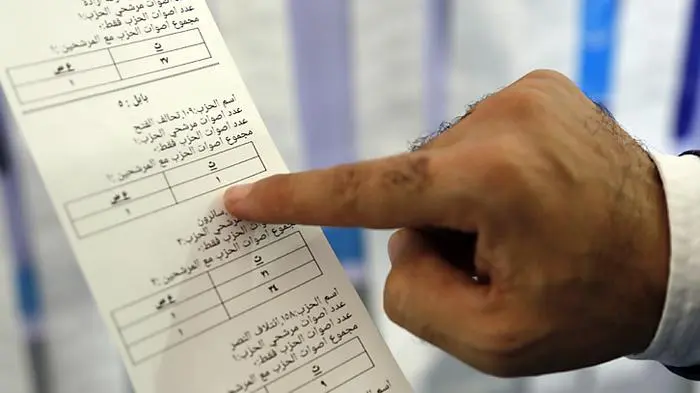 عدد أصوات مرشحي الحزب:
عدد أصوات الحزب فقط:٠
مجموع أصوات الحزب مع المرشحين:١
ت ع ص
٢٧ ١
بابل: ٥
اسم الحزب:١٠٩ تحالف الفتح
عدد أصوات مرشحي الحزب:١
عدد أصوات الحزب فقط:٠
مجموع أصوات الحزب مع المرشحين:١
ت ع ص
١ ١
سائرون
مرشحي الحزب:٢
أصوات الحزب فقط:٠
مجموع أصوات الحزب مع المرشحين:٢
ت ع ص
٢١ ١
٢٤ ١
اسم الحزب:١٥٨ ائتلاف النصر
عدد أصوات مرشحي الحزب:١
عدد أصوات الحزب فقط:٠
مجموع أصوات الحزب مع المرشحين:١
ت
٩